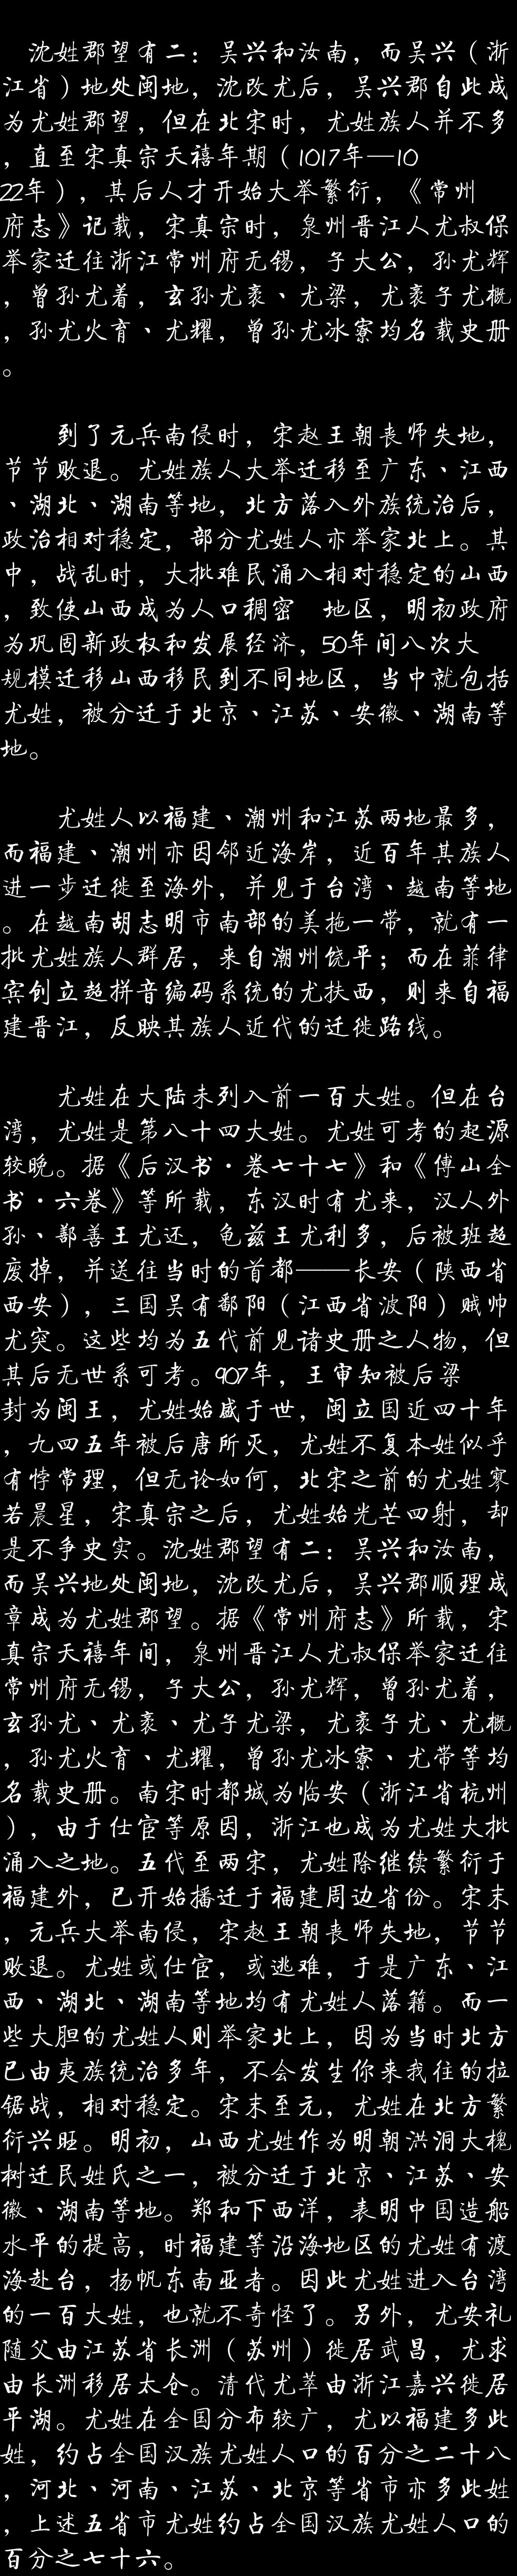 沈姓郡望有二：吴兴和汝南，而吴兴（浙
江省）地处闽地，沈改尤后，吴兴郡自此成
为尤姓郡望，但在北宋时，尤姓族人并不多
，直至宋真宗天禧年期（1017年—10
22年），其后人才开始大举繁衍，《常州
府志》记载，宋真宗时，泉州晋江人尤叔保
举家迁往浙江常州府无锡，子大公，孙尤辉
，曾孙尤着，玄孙尤袤、尤梁，尤袤子尤概
，孙尤火育、尤耀，曾孙尤冰寮均名载史册
。
到了元兵南侵时，宋赵王朝丧师失地，
节节败退。尤姓族人大举迁移至广东、江西
、湖北、湖南等地，北方落入外族统治后，
政治相对稳定，部分尤姓人亦举家北上。其
中，战乱时，大批难民涌入相对稳定的山西
，致使山西成为人口稠密 地区，明初政府
为巩固新政权和发展经济，50年间八次大
规模迁移山西移民到不同地区，当中就包括
尤姓，被分迁于北京、江苏、安徽、湖南等
地。
尤姓人以福建、潮州和江苏两地最多，
而福建、潮州亦因邻近海岸，近百年其族人
进一步迁徙至海外，并见于台湾、越南等地
。在越南胡志明市南部的美拖一带，就有一
批尤姓族人群居，来自潮州饶平；而在菲律
宾创立超拼音编码系统的尤扶西，则来自福
建晋江，反映其族人近代的迁徙路线。
尤姓在大陆未列入前一百大姓。但在台
湾，尤姓是第八十四大姓。尤姓可考的起源
较晚。据《后汉书·卷七十七》和《傅山全
书·六卷》等所载，东汉时有尤来，汉人外
孙、鄯善王尤还，龟兹王尤利多，后被班超
废掉，并送往当时的首都——长安（陕西省
西安），三国吴有鄱阳（江西省波阳）贼帅
尤突。这些均为五代前见诸史册之人物，但
其后无世系可考。907年，王审知被后梁
封为闽王，尤姓始盛于世，闽立国近四十年
，九四五年被后唐所灭，尤姓不复本姓似乎
有悖常理，但无论如何，北宋之前的尤姓寥
若晨星，宋真宗之后，尤姓始光芒四射，却
是不争史实。沈姓郡望有二：吴兴和汝南，
而吴兴地处闽地，沈改尤后，吴兴郡顺理成
章成为尤姓郡望。据《常州府志》所载，宋
真宗天禧年间，泉州晋江人尤叔保举家迁往
常州府无锡，子大公，孙尤辉，曾孙尤着，
玄孙尤、尤袤、尤子尤梁，尤袤子尤、尤概
，孙尤火育、尤耀，曾孙尤冰寮、尤带等均
名载史册。南宋时都城为临安（浙江省杭州
），由于仕官等原因，浙江也成为尤姓大批
涌入之地。五代至两宋，尤姓除继续繁衍于
福建外，已开始播迁于福建周边省份。宋末
，元兵大举南侵，宋赵王朝丧师失地，节节
败退。尤姓或仕官，或逃难，于是广东、江
西、湖北、湖南等地均有尤姓人落籍。而一
些大胆的尤姓人则举家北上，因为当时北方
已由夷族统治多年，不会发生你来我往的拉
锯战，相对稳定。宋末至元，尤姓在北方繁
衍兴旺。明初，山西尤姓作为明朝洪洞大槐
树迁民姓氏之一，被分迁于北京、江苏、安
徽、湖南等地。郑和下西洋，表明中国造船
水平的提高，时福建等沿海地区的尤姓有渡
海赴台，扬帆东南亚者。因此尤姓进入台湾
的一百大姓，也就不奇怪了。另外，尤安礼
随父由江苏省长洲（苏州）徙居武昌，尤求
由长洲移居太仓。清代尤萃由浙江嘉兴徙居
平湖。尤姓在全国分布较广，尤以福建多此
姓，约占全国汉族尤姓人口的百分之二十八
，河北、河南、江苏、北京等省市亦多此姓
，上述五省市尤姓约占全国汉族尤姓人口的
百分之七十六。